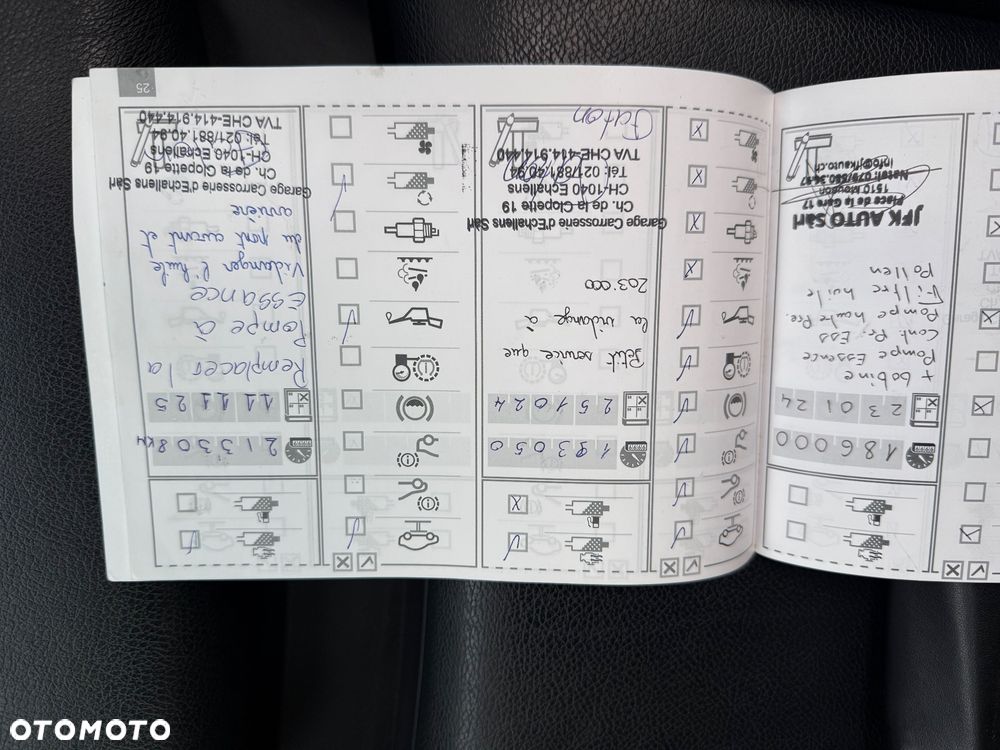 186000
23 01 24
+ bobine
Pompe Essence
Cont Pr. Ess
Pompe haute Pre.
Filtre huile
Pollen
JFK AUTO Sàrl
Place de la Gare 17
1510 Moudon
info@jfkauto.ch
193050
25 10 24
Petit service que
la vidange à
203.000
Garage Carrosserie d'Echallens Sàrl
Ch. de la Clopette 19
CH-1040 Echallens
Tél. 021/881.40.94
TVA CHE-414.914.440
213308 KM
11 11 25
Remplacer la
Pompe à
Essance
Vidanger l'huile
du pont avant et
arrière
Garage Carrosserie d'Echallens Sàrl
Ch. de la Clopette 19
CH-1040 Echallens
Tél. 021/881.40.94
TVA CHE-414.914.440
25
OTOMOTO